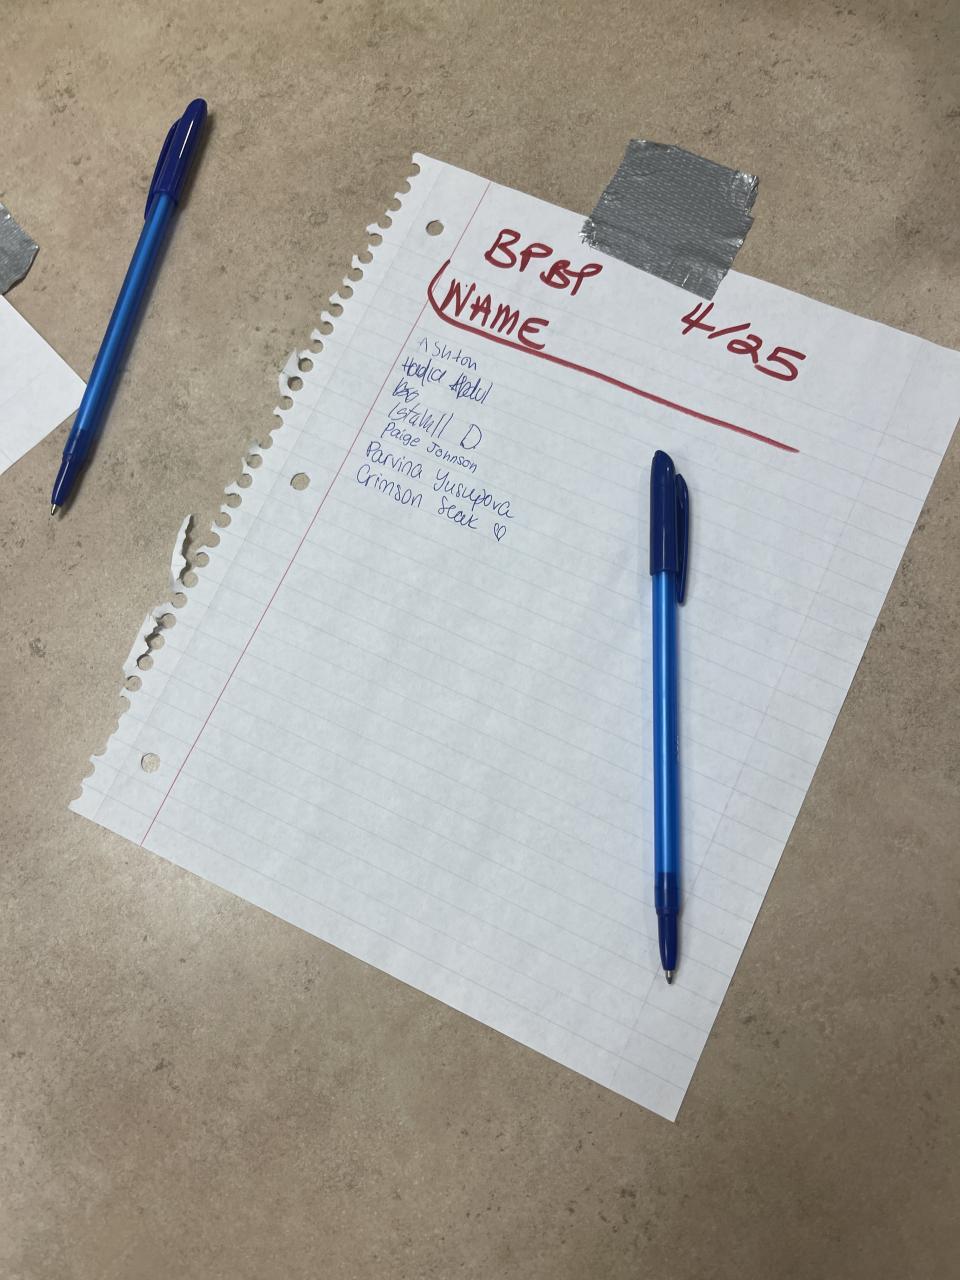 BPBP
4/25
NAME
Ashton
Abdul
Bo
D
Paige Johnson
Parvina Yusupova
Crimson Seak ♡